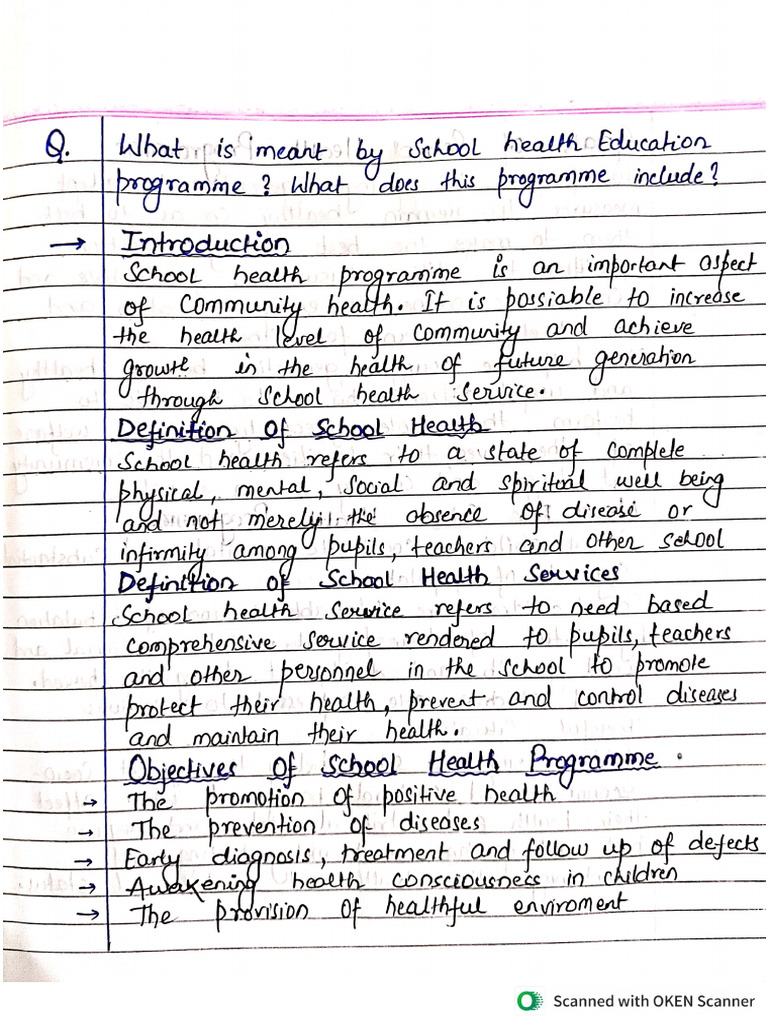 Q. What is meant by School health Education
programme? What does this programme include?
→ Introduction
School health programme is an important aspect
of Community health. It is possiable to increase
the health level of community and achieve
growth in the health of future generation
through school health service.
Definition of School Health
School health refers to a state of complete
physical, mental, social and spiritual well being
and not merely the absence of disease or
infirmity among pupils, teachers and other school
Definition of School Health Services
School health service refers to need based
comprehensive service rendered to pupils, teachers
and other personnel in the school to promote
protect their health, prevent and control diseases
and maintain their health.
Objectives of School Health Programme.
→ The promotion of positive health
→ The prevention of diseases
→ Early diagnosis, treatment and follow up of defects
→ Awakening health consciousness in children
→ The provision of healthful enviroment
Scanned with OKEN Scanner